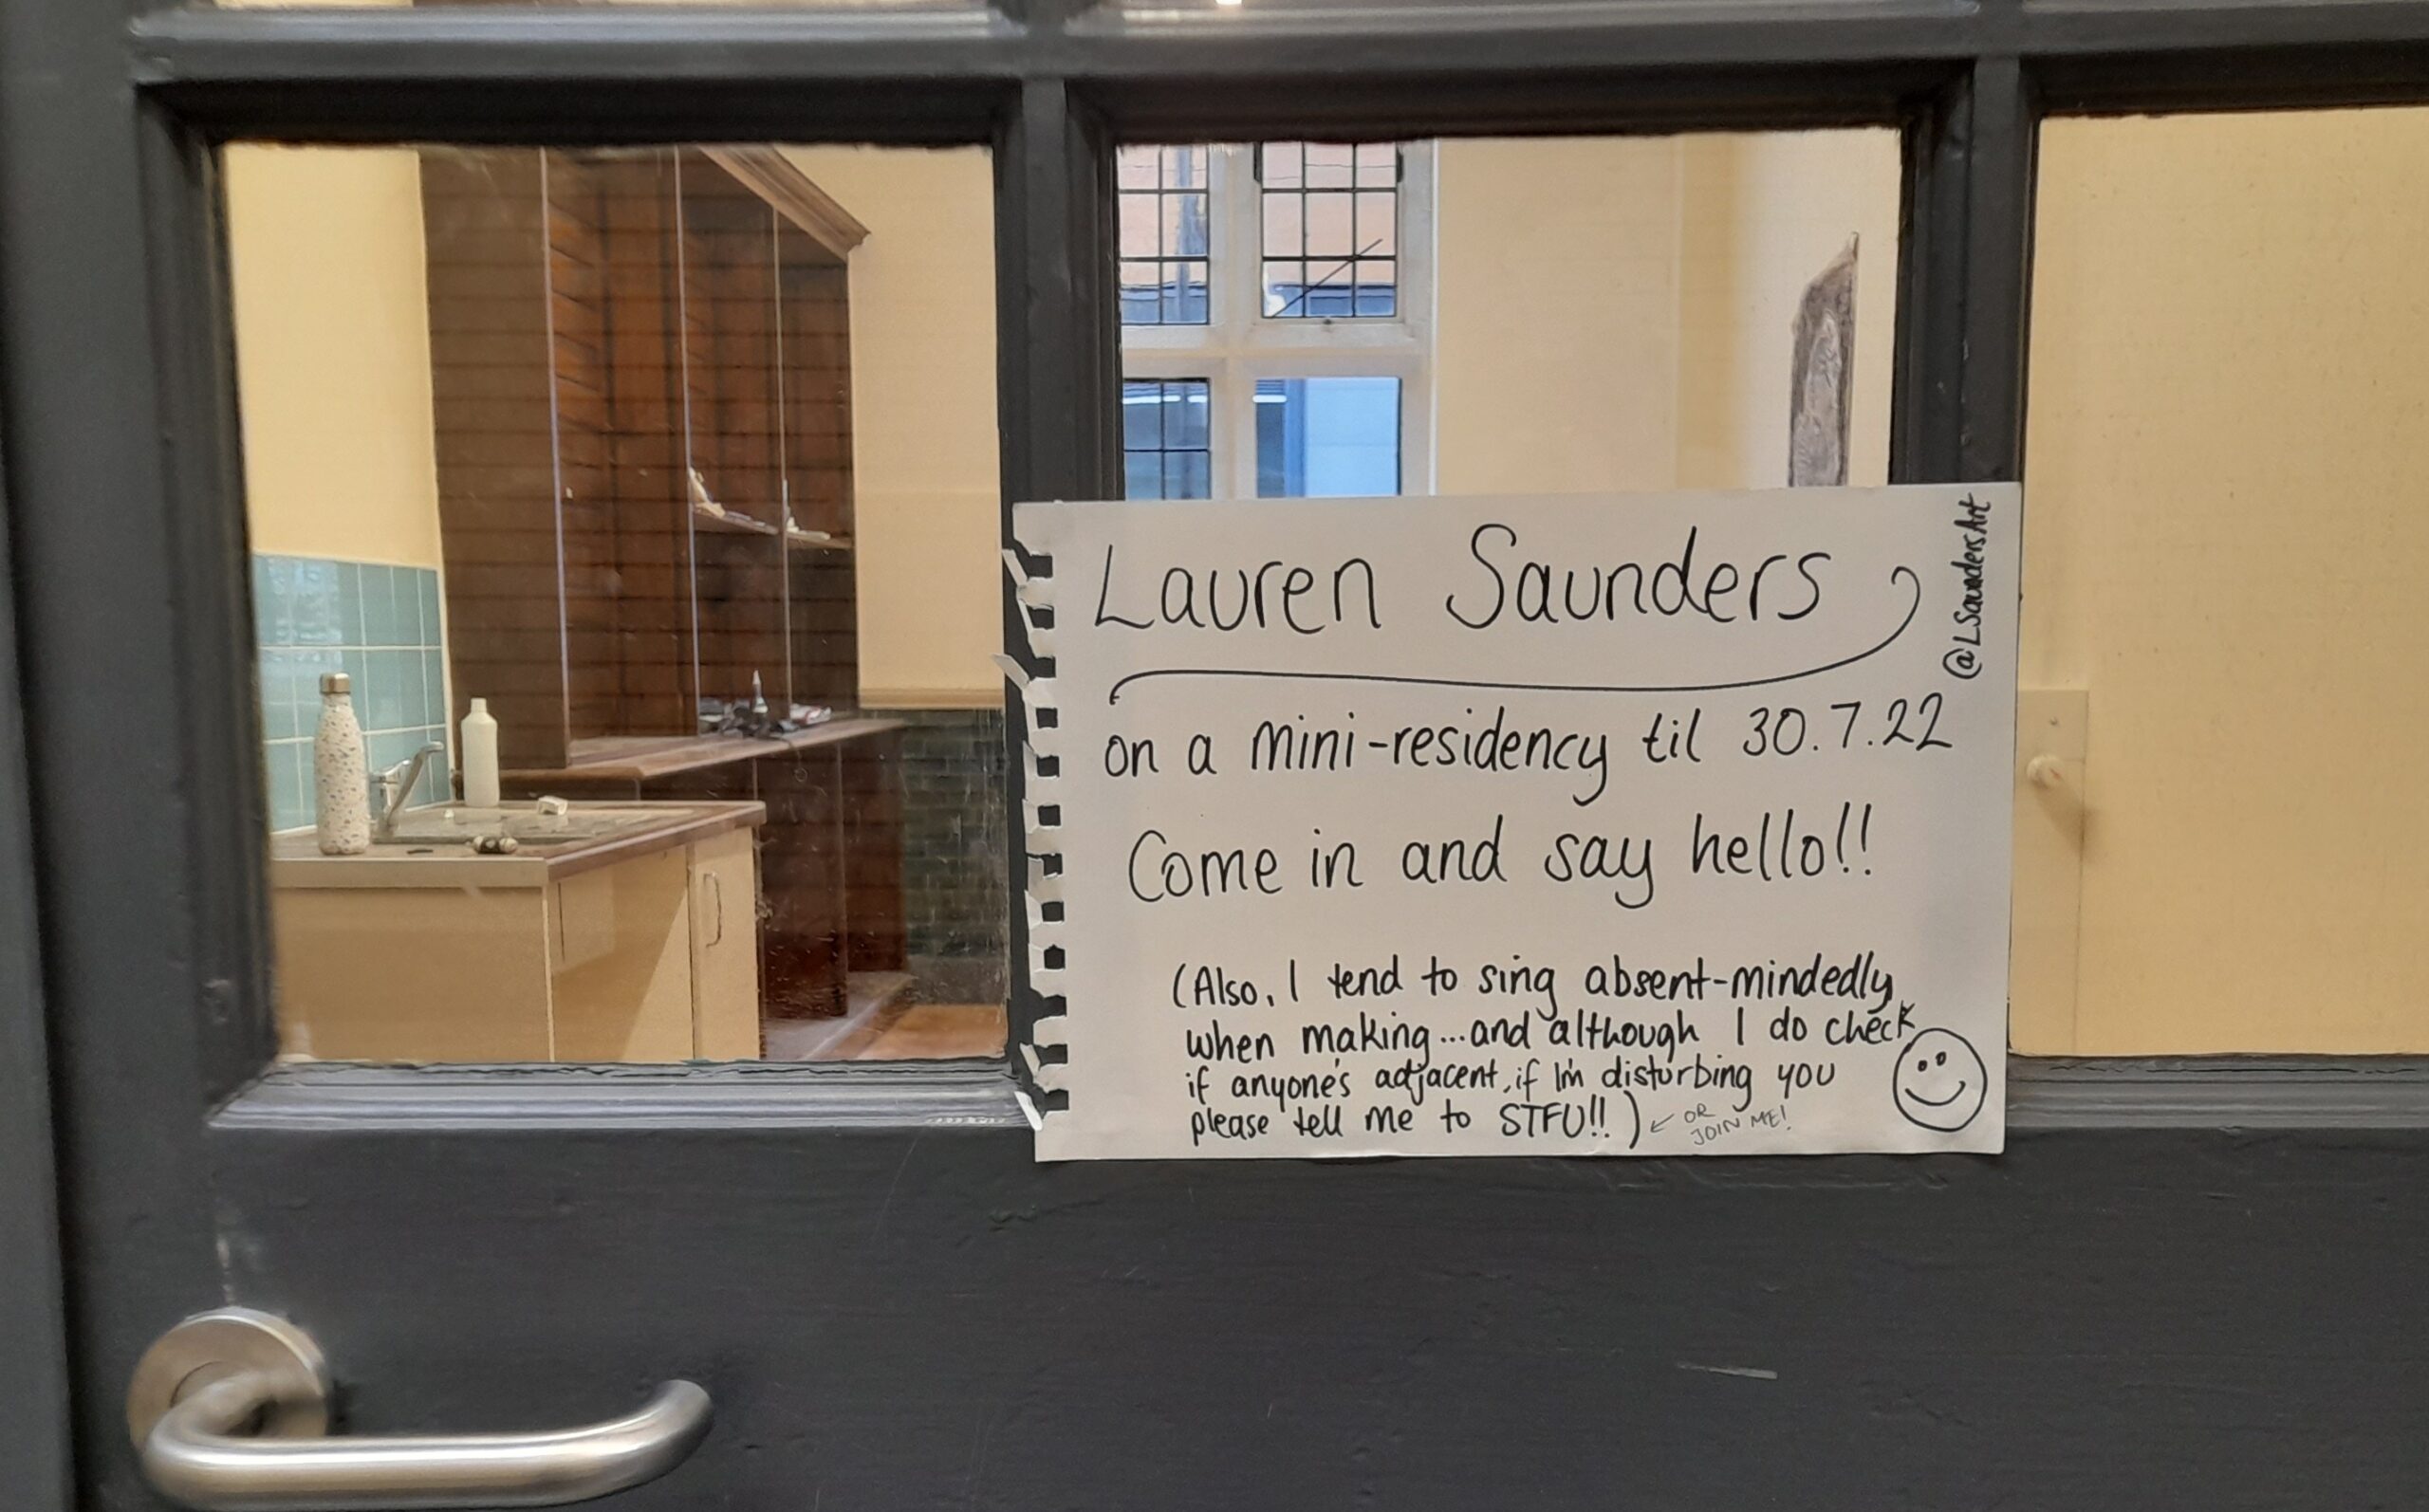 Lauren Saunders
@LSaundersArt
on a mini-residency til 30.7.22
Come in and say hello!!
(Also, I tend to sing absent-mindedly
when making...and although I do check
if anyone's adjacent, if I'm disturbing you
please tell me to STFU!!) ← OR
JOIN ME!